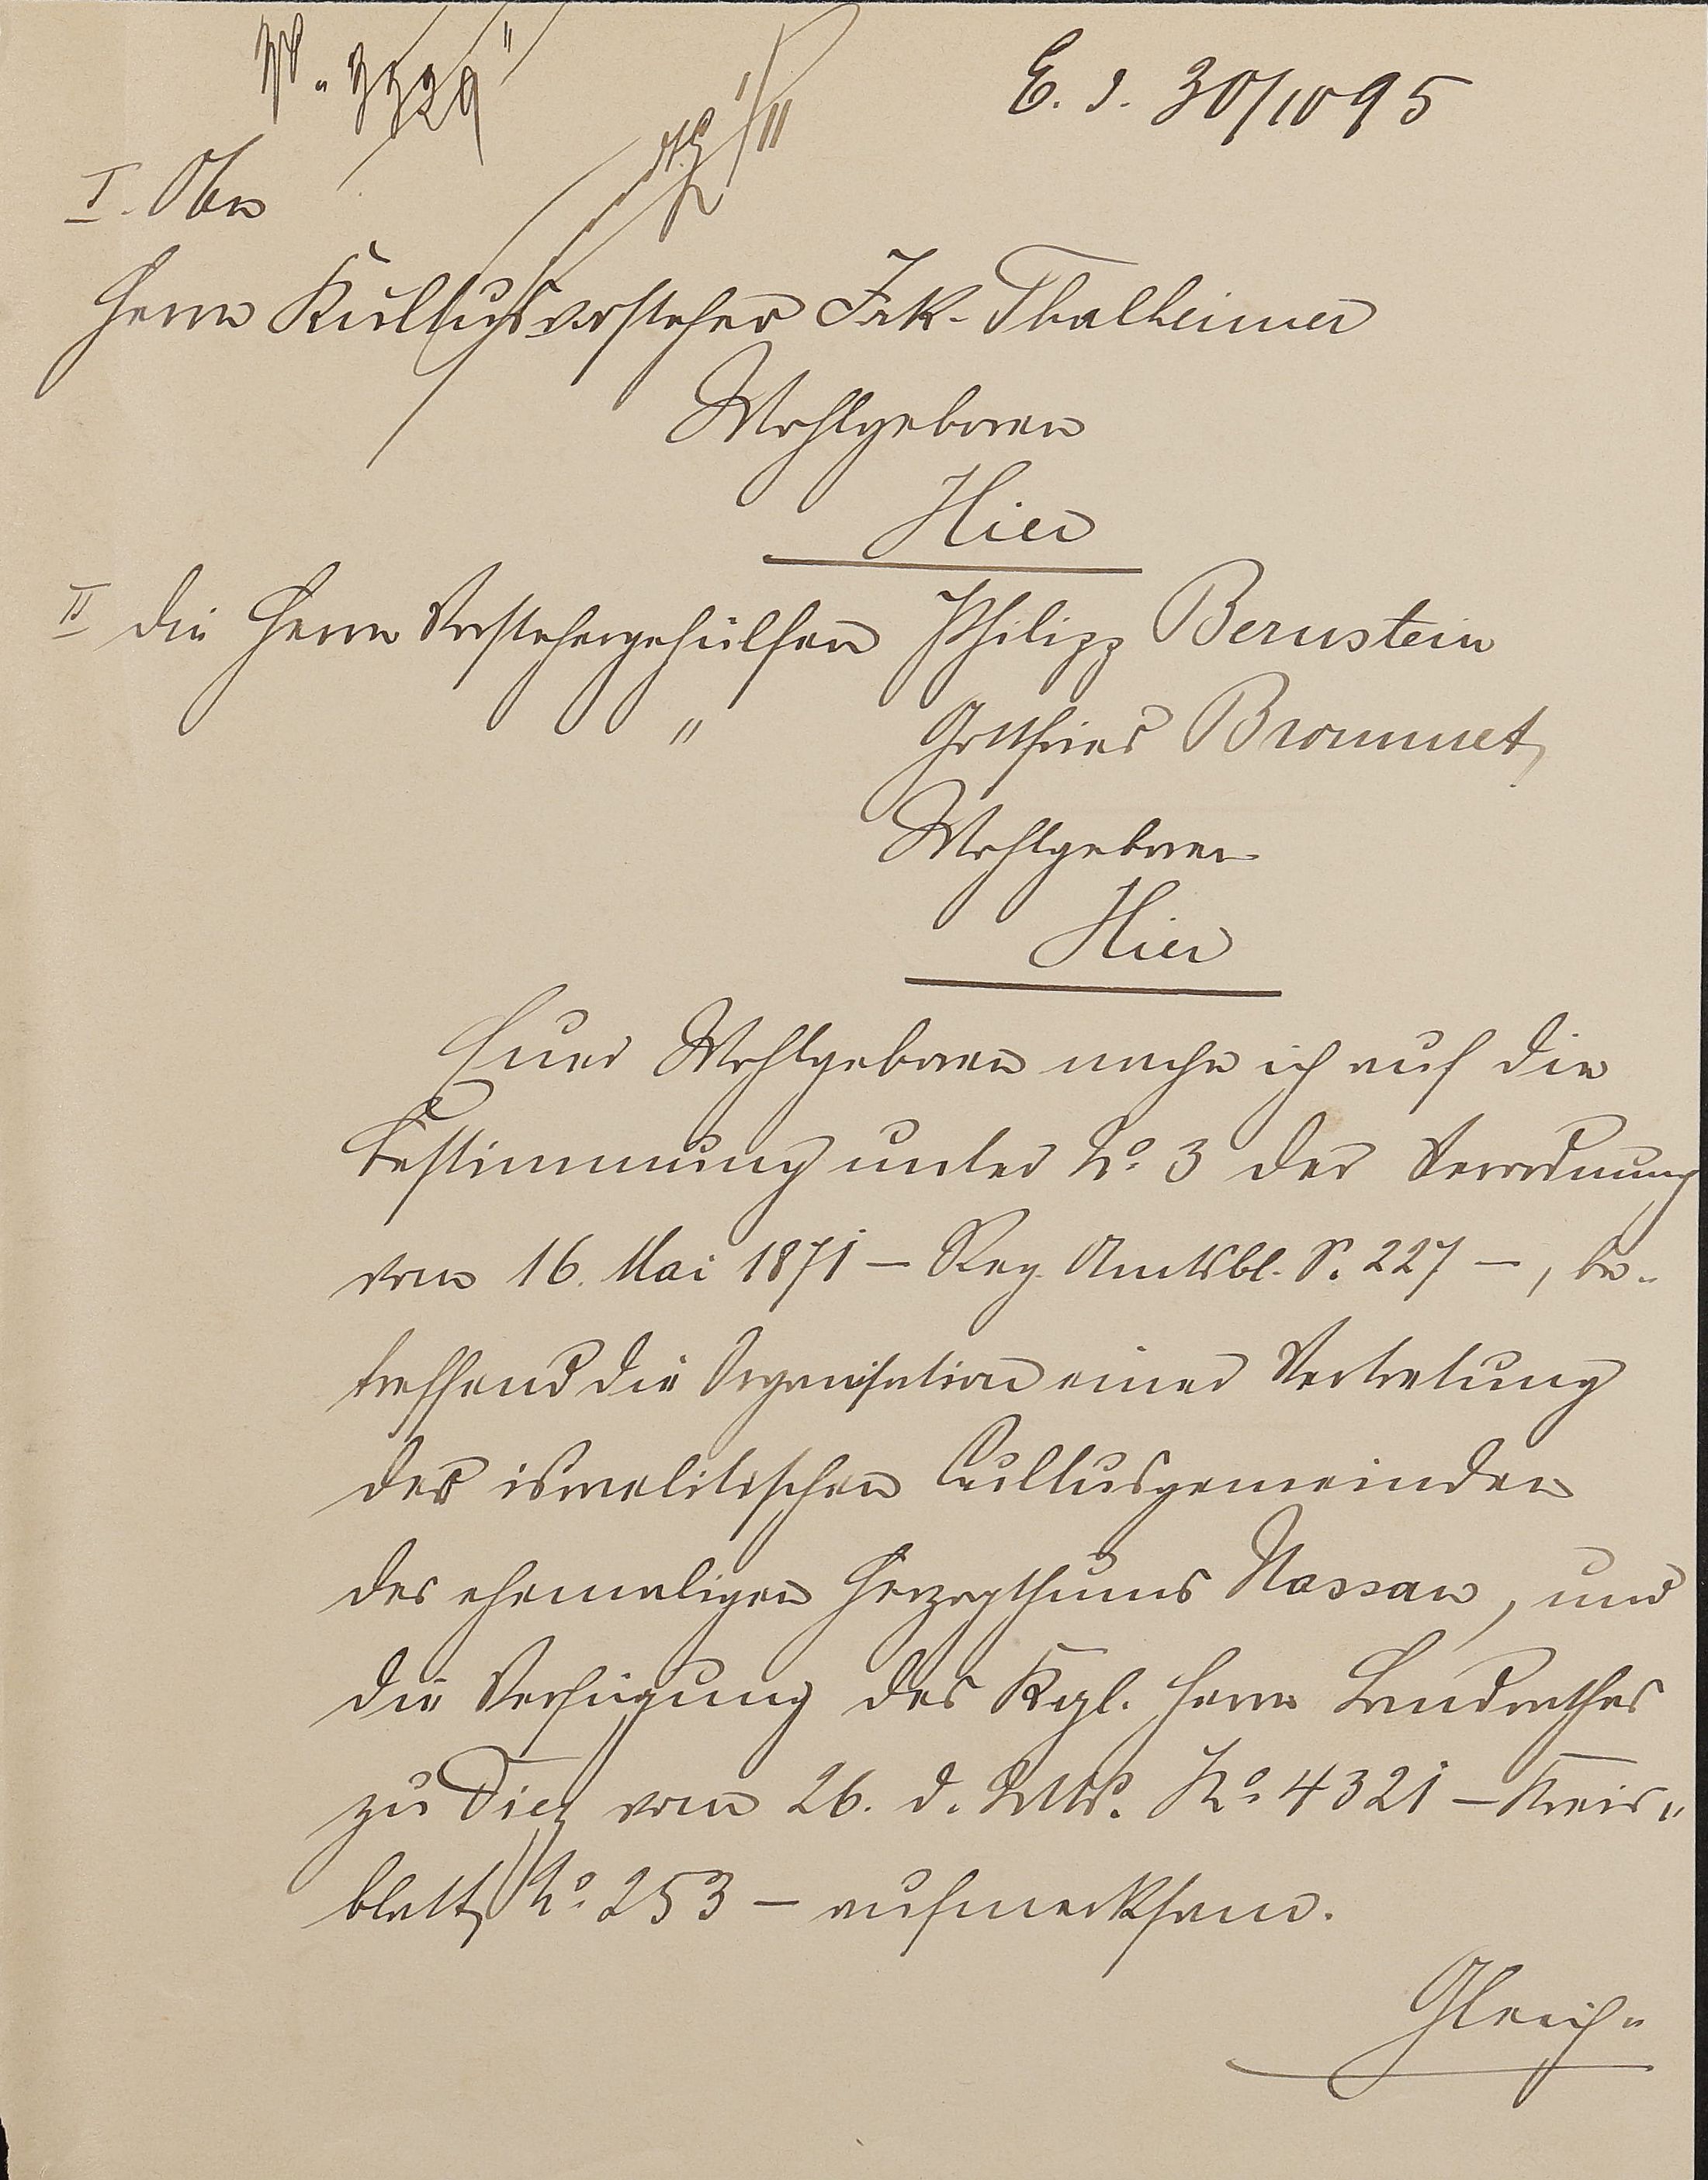 № 3329
E. d. 30/10 95
I. An
Herrn Kultusvorsteher Isk. Thalheimer
Wohlgeboren
Hier
II die Herrn Vorstehergehülfen Philipp Bernstein
" Gottfried Brommet,
Wohlgeboren
Hier
Euer Wohlgeboren mache ich auf die
Bestimmung unter No. 3 der Verordnung
vom 16. Mai 1871 – Reg. Amtsbl. S. 227 –, be-
treffend die Organisation einer Vertretung
der israelitischen Cultusgemeinden
des ehemaligen Herzogthums Nassau, und
die Verfügung des Kgl. Herrn Landrathes
zu Diez vom 26. d. Mts. No. 4321 – Kreis-
blatt No. 253 – aufmerksam.
Gleich-